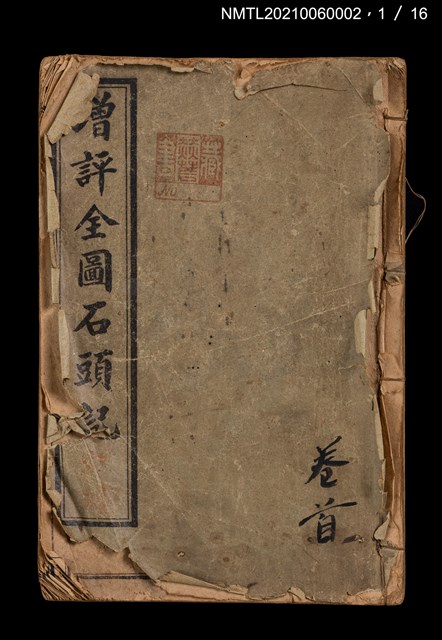 NMTL20210060002，1 / 16
增評全圖石頭記
卷首